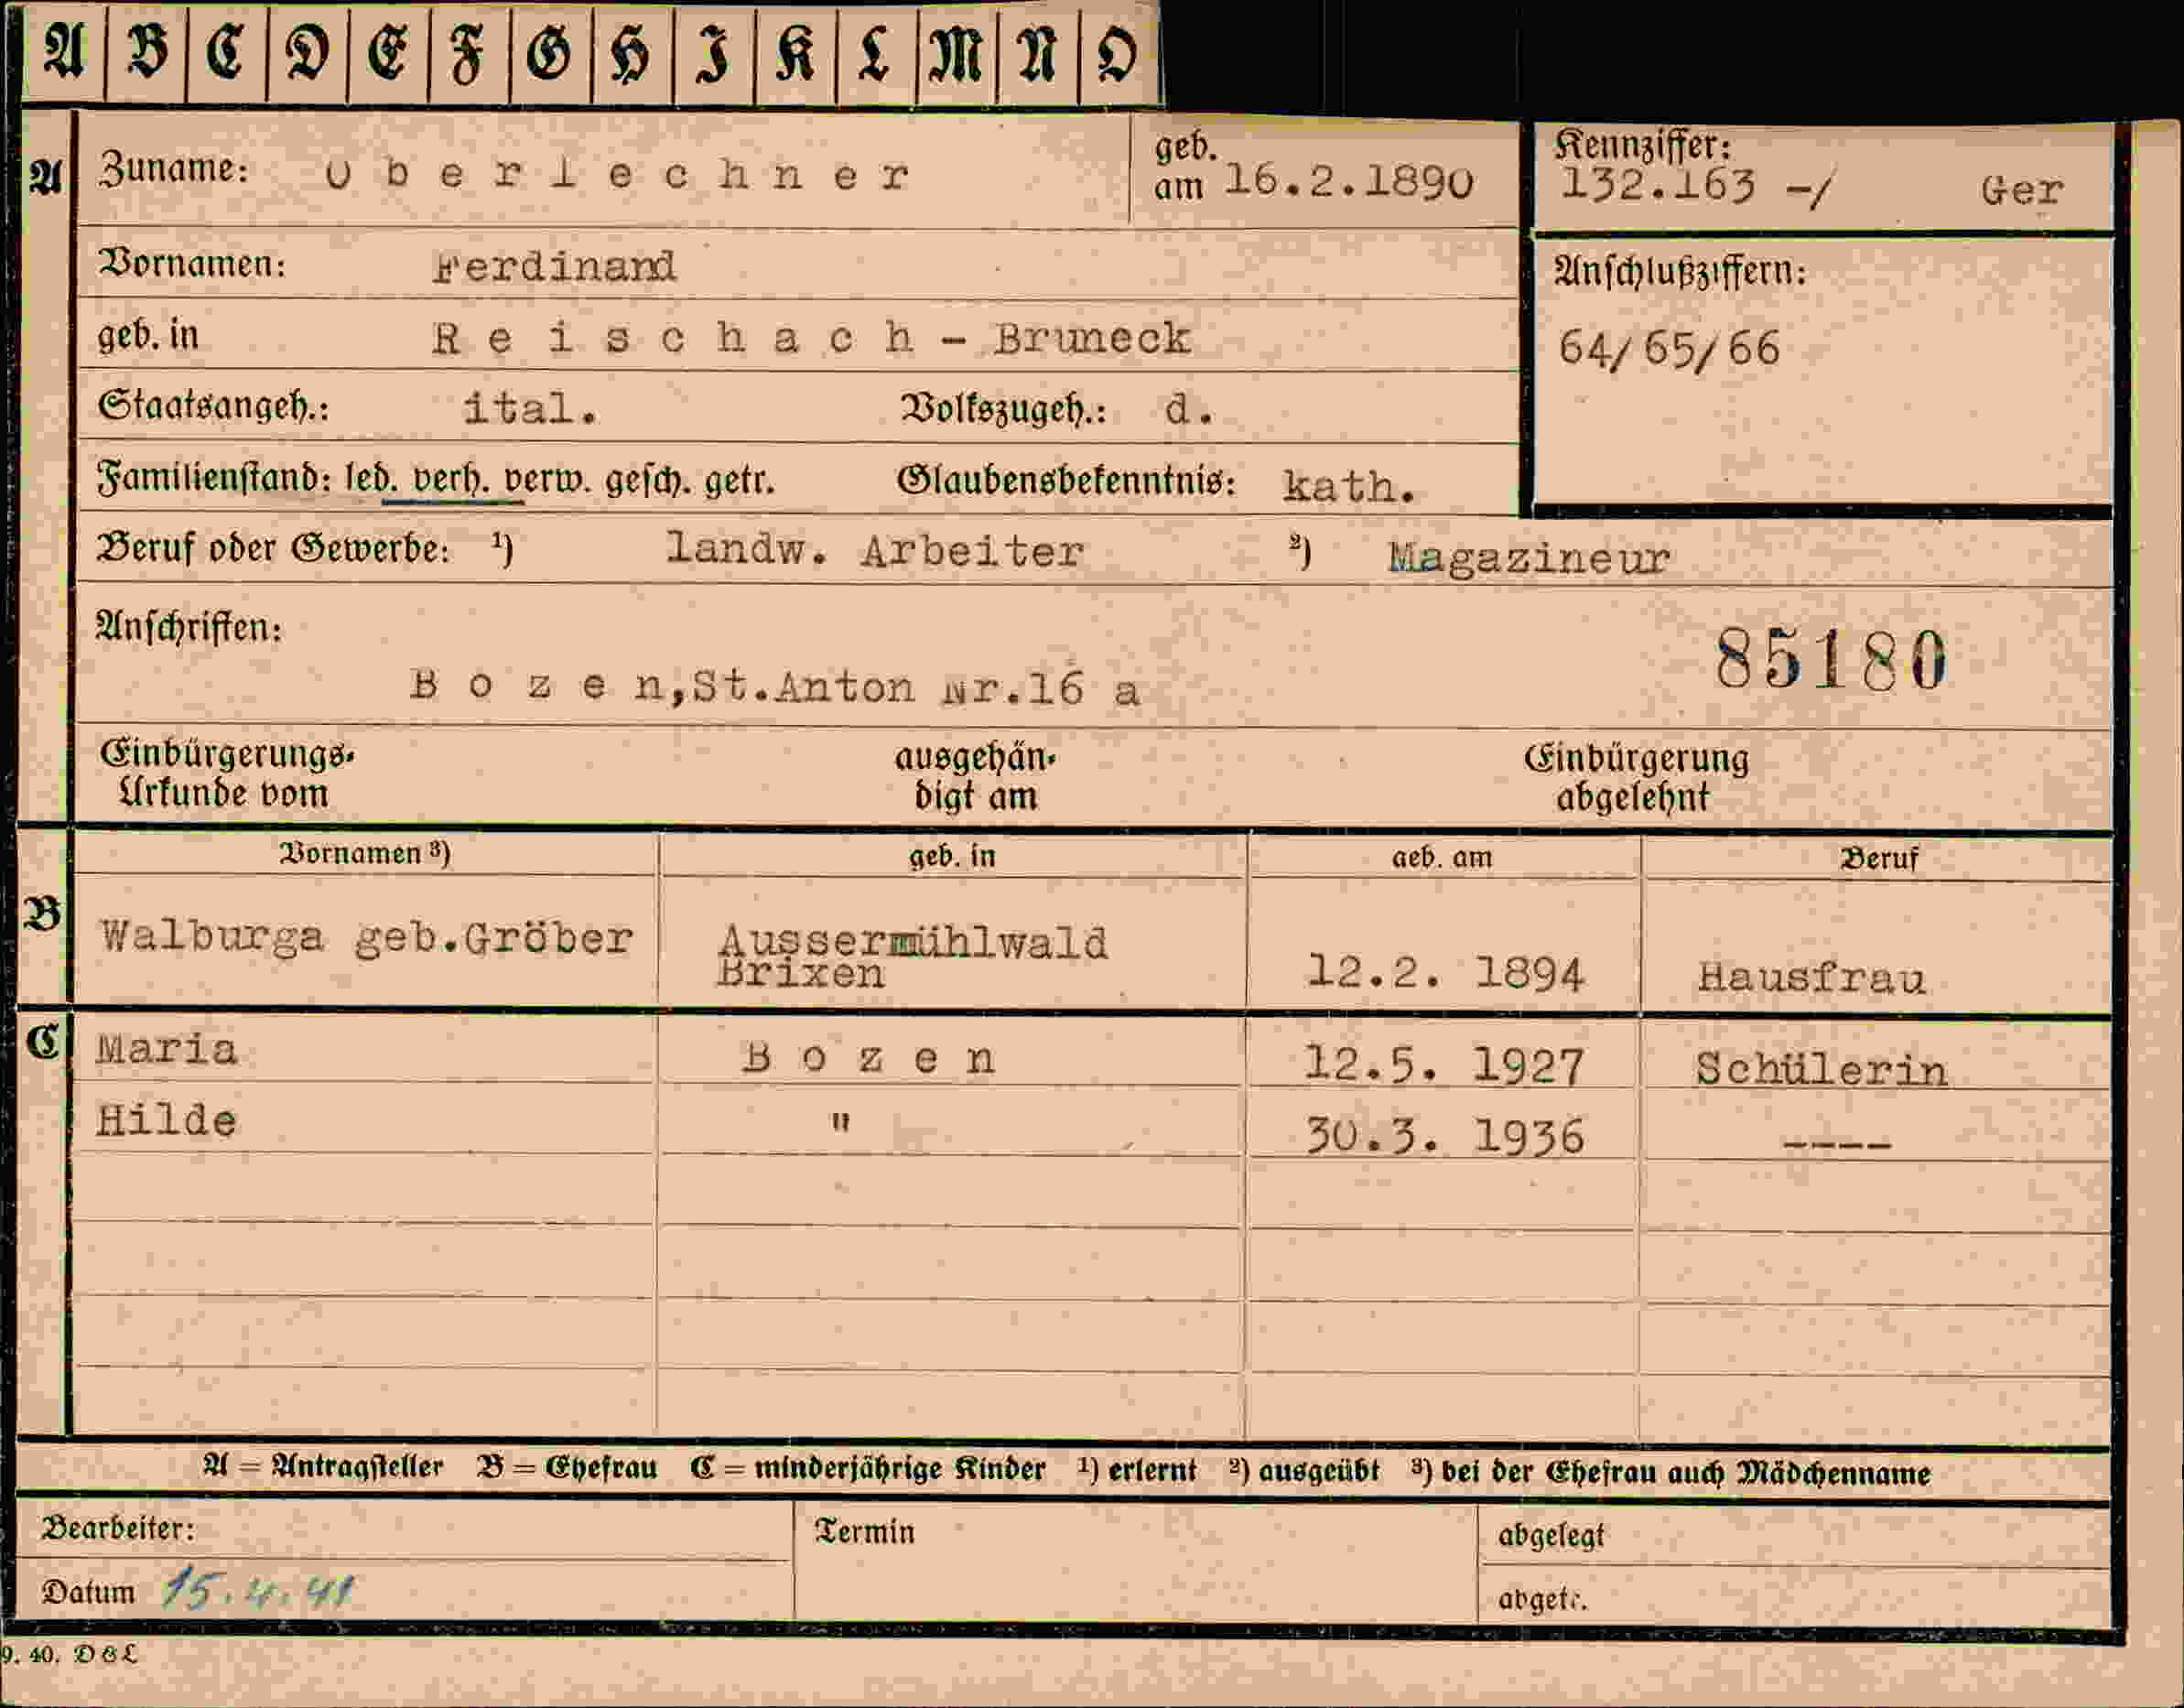 A B C D E F G H I K L M N O
A Zuname: Oberlechner geb. am 16.2.1890 Kennziffer: 132.163 -/ Ger
Vornamen: Ferdinand Anschlußziffern:
geb. in Reischach - Bruneck 64/65/66
Staatsangeh.: ital. Volkszugeh.: d.
Familienstand: led. verh. verw. gesch. getr. Glaubensbekenntnis: kath.
Beruf oder Gewerbe: ¹) landw. Arbeiter ²) Magazineur
Anschriften: 85180
Bozen,St.Anton Nr.16 a
Einbürgerungs- ausgehän- Einbürgerung
Urkunde vom digt am abgelehnt
Vornamen ³) geb. in geb. am Beruf
B Walburga geb.Gröber Aussermühlwald
Brixen 12.2. 1894 Hausfrau
C Maria Bozen 12.5. 1927 Schülerin
Hilde " 30.3. 1936 ----
A = Antragsteller B = Ehefrau C = minderjährige Kinder ¹) erlernt ²) ausgeübt ³) bei der Ehefrau auch Mädchenname
Bearbeiter: Termin abgelegt
Datum 15.4.41 abgetr.
9. 40. D & L